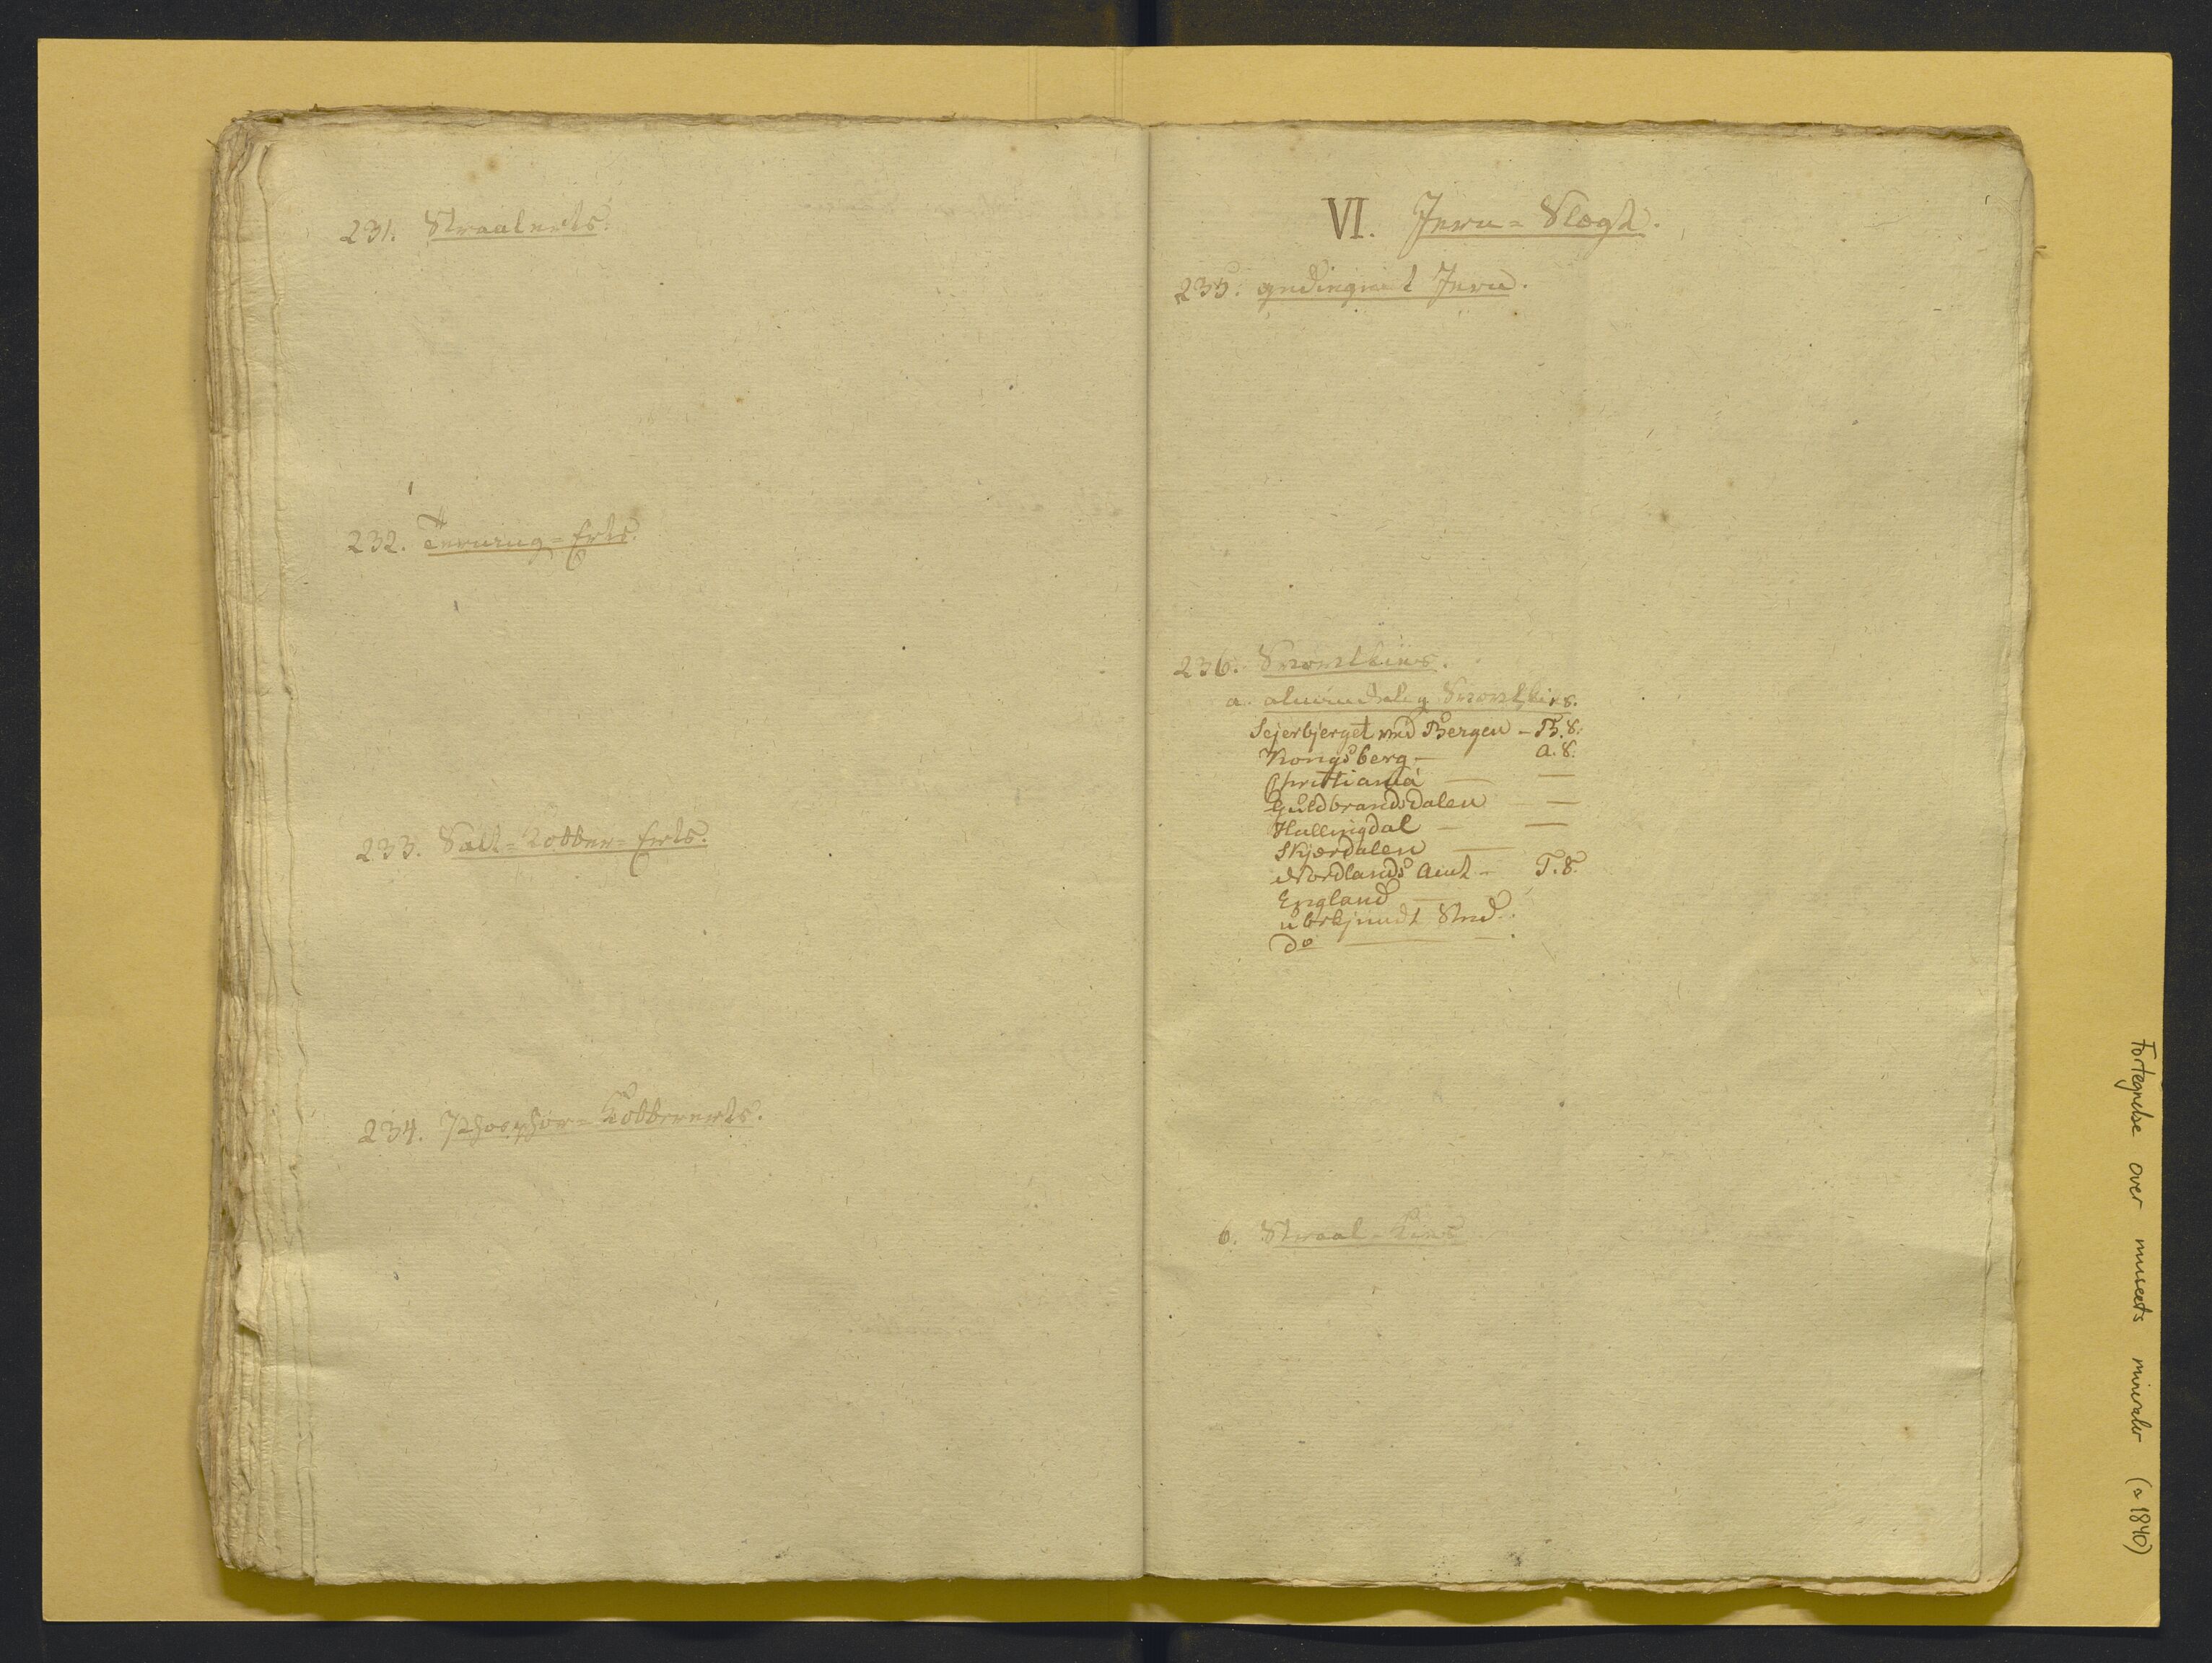 231. Straalerts.
232. Jernrug=Erts.
233. Salt=Kobber=Erts.
234. Phosphor=Kobbererts.
VI. Jern=Slægt.
235. gediegent Jern.
236. Svovelkies.
a. almindelig Svovelkies.
Sejerbjerget ved Bergen – B. S.
Kongsberg – A. S.
Christiania — —
Guldbrandsdalen —
Hallingdal – —
Skjerdalen —
Nordlands Amt – T. S.
England —
ubekjendt Sted.
Do — – .
b. Straal=Kies
Fortegnelse over museets mineraler (ca 1840)